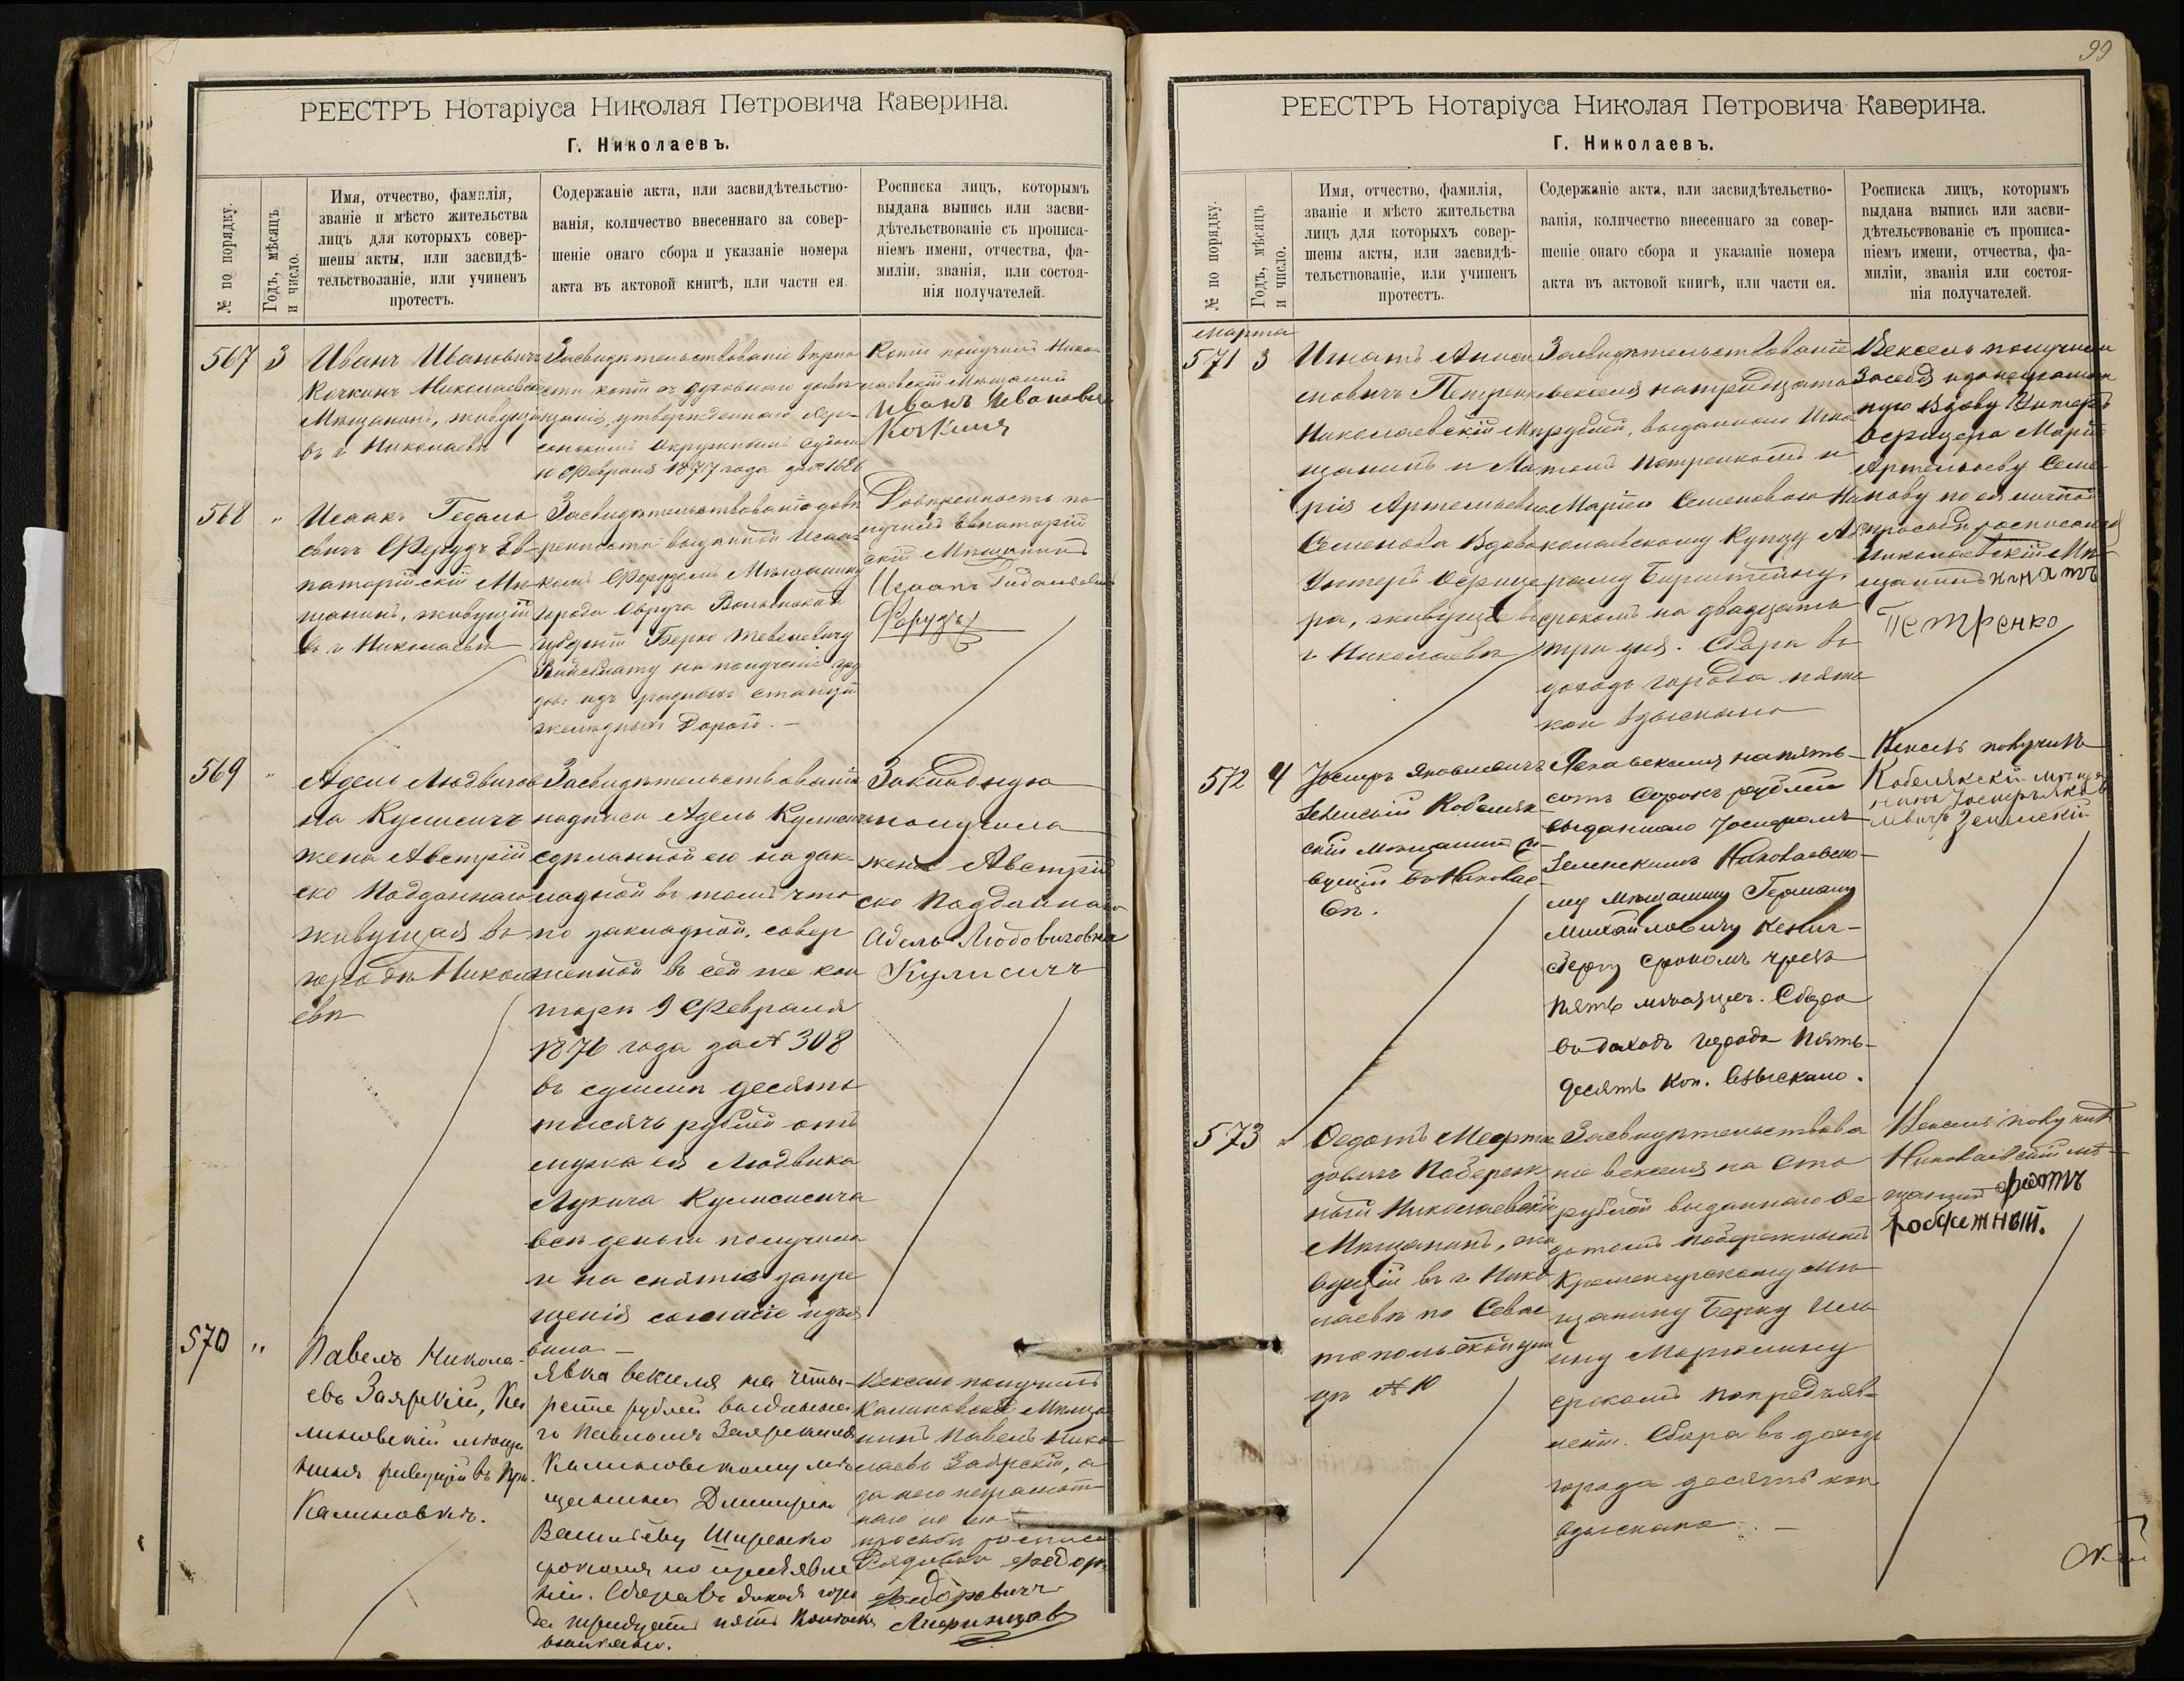 РЕЕСТРЪ Нотаріуса Николая Петровича Каверина.
Г. Николаевъ.
№ по порядку.
Годъ, мѣсяцъ
и число.
Имя, отчество, фамилія,
званіе и мѣсто жительства
лицъ для которыхъ совер-
шены акты, или засвидѣ-
тельствованіе, или учиненъ
протестъ.
Содержаніе акта, или засвидѣтельство-
ванія, количество внесеннаго за совер-
шеніе онаго сбора и указаніе номера
акта въ актовой книгѣ, или части ея.
Росписка лицъ, которымъ
выдана выпись или засви-
дѣтельствованіе съ прописа-
ніемъ имени, отчества, фа-
миліи, званія, или состоя-
нія получателей.
567 3
Иванъ Ивановичъ
Кочкинъ Николаевскій
Мѣщанинъ, живущій
въ г. Николаевѣ
Засвидѣтельствованіе вѣрно
сти копіи съ духовнаго завѣ
щанія, утвержденнаго Хер-
сонскимъ Окружнымъ Судомъ
Февраля 1877 года за №
Копію получилъ Нико-
лаевскій Мѣщанинъ
Иванъ Ивановъ
Кочкинъ
568 "
Исаакъ Гедаль
евичъ Ферудъ Ев-
паторійскій Мѣ
щанинъ, живущій
въ г. Николаевѣ
Засвидѣтельствованіе довѣ
ренности выданной Исаа-
комъ Мѣщанину
города Овруча Волынской
губерніи Берко Тевелевичу
на полученіе гру
зовъ изъ разныхъ станцій
желѣзныхъ дорогъ. —
Довѣренность по
лучилъ Евпаторій
скій Мѣщанинъ
Исаакъ
569 "
Адель Людвигов
на Кулисичъ
жена Австрій
ско Подданнаго
живущая въ
городѣ Никола
евѣ
Засвидѣтельствованіе
надписи Адель Кулисичъ
сдѣланной ею на зак-
ладной въ томъ что
по закладной, совер
шенной въ сей же кон
торѣ 9 Февраля
1876 года за № 308
въ суммѣ десять
тысячъ рублей отъ
мужа ея Людвика
Лукича Кулисича
всѣ деньги получила
и на снятіе запре
щенія согласіе изъя
вила —
Закладную
получила
жена Австрій
ско Подданнаго
Адель Людовиговна
Кулисичъ
570 "
Павелъ Никола-
евъ Заярскій, Ка
линовскій мѣща
нинъ живущій въ
Калиновкѣ.
Явка векселя на четы-
реста рублей выданна
го Павломъ Заярскимъ
Калиновскому мѣ
щанину Дмитрію
Васильеву Ширенко
срокомъ по предъявле
ніи. Сбора въ доходъ горо
да тридцать пять копѣекъ
взыскано.
Вексель получилъ
Калиновскій Мѣща
нинъ Павелъ Нико
лаевъ Заярскій, а
за него неграмот-
наго по его
просьбѣ росписал
Федор
Федоровичъ
РЕЕСТРЪ Нотаріуса Николая Петровича Каверина.
Г. Николаевъ.
99
№ по порядку.
Годъ, мѣсяцъ
и число.
Имя, отчество, фамилія,
званіе и мѣсто жительства
лицъ для которыхъ совер-
шены акты, или засвидѣ-
тельствованіе, или учиненъ
протестъ.
Содержаніе акта, или засвидѣтельство-
ванія, количество внесеннаго за совер-
шеніе онаго сбора и указаніе номера
акта въ актовой книгѣ, или части ея.
Росписка лицъ, которымъ
выдана выпись или засви-
дѣтельствованіе съ прописа-
ніемъ имени, отчества, фа-
миліи, званія или состоя-
нія получателей.
Марта
571 3
Игнатъ Аниси
мовичъ Петренко
Николаевскій Мѣ
щанинъ и Ма
рія Артемьевна
Семенова Вдова
Унтеръ Офице
ра, живущіе въ
г. Николаевѣ
Засвидѣтельствованіе
векселя на тридцать
рублей, выданнаго Игна
томъ Петренкомъ и
Маріею Семеновою Ни
колаевскому Купцу Аб
раму Бирштейну,
срокомъ на двадцать
три дня. Сбора въ
доходъ города пять
коп взыскано
Вексель получили
за себя и за неграмот
ную Вдову Унтеръ
Офицера Марію
Артемьеву Семе
нову по ея личной
просьбѣ росписался
Николаевскій Мѣ-
щанинъ Игнатъ
Петренко
572 4
Іосифъ Яковлевичъ
Зелинскій Кобеляк-
скій мѣщанинъ жи-
вущій въ Николае-
вѣ.
Явка векселя на пять-
сотъ сорокъ рублей
выданнаго Іосифомъ
Зелинскимъ Николаевско-
му мѣщанину Герману
Михайловичу Кениг-
бергу срокомъ чрезъ
пять мѣсяцевъ. Сбора
въ доходъ города пять-
десятъ коп. взыскано.
Вексель получилъ
Кобелякскій мѣща
нинъ Іосифъ Яков
левичъ Зелинскій
573 "
Федотъ
Побереж
ный Николаевскій
Мѣщанинъ, жи
вущій въ г. Нико
лаевѣ по Севас
топольской ули
цѣ № 10
Засвидѣтельствова
ніе векселя на сто
рублей выданнаго Фе
дотомъ Побережнымъ
Кременчугскому Мѣ
щанину Берку
срокомъ по предъяв-
леніи. Сбора въ доходъ
города десять коп
взыскано. —
Вексель получилъ
Николаевскій мѣ-
щанинъ